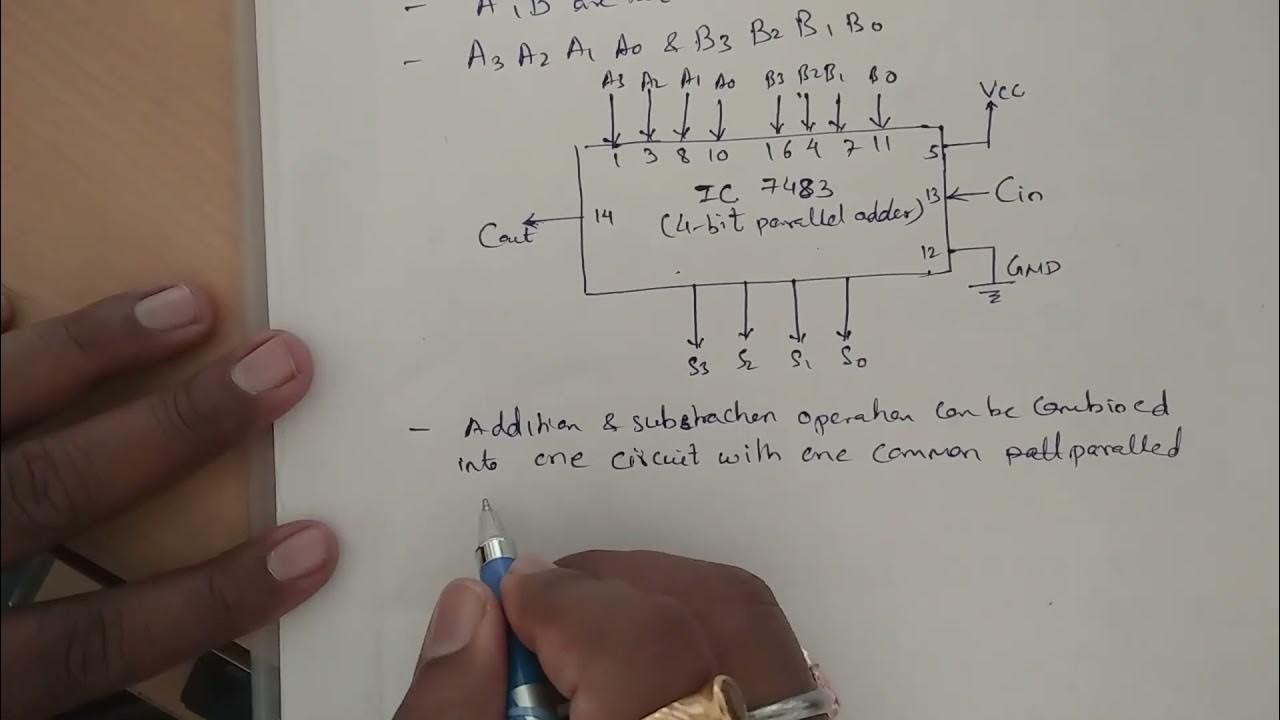 - A, B are
- A3 A2 A1 A0 & B3 B2 B1 B0
A3 A2 A1 A0 B3 B2 B1 B0
Vcc
1 3 8 10 16 4 7 11 5
IC 7483 13 Cin
Cout 14 (4-bit parallel adder)
12 GND
S3 S2 S1 S0
- Addition & substraction operation can be combined
into one circuit with one common paralled
A